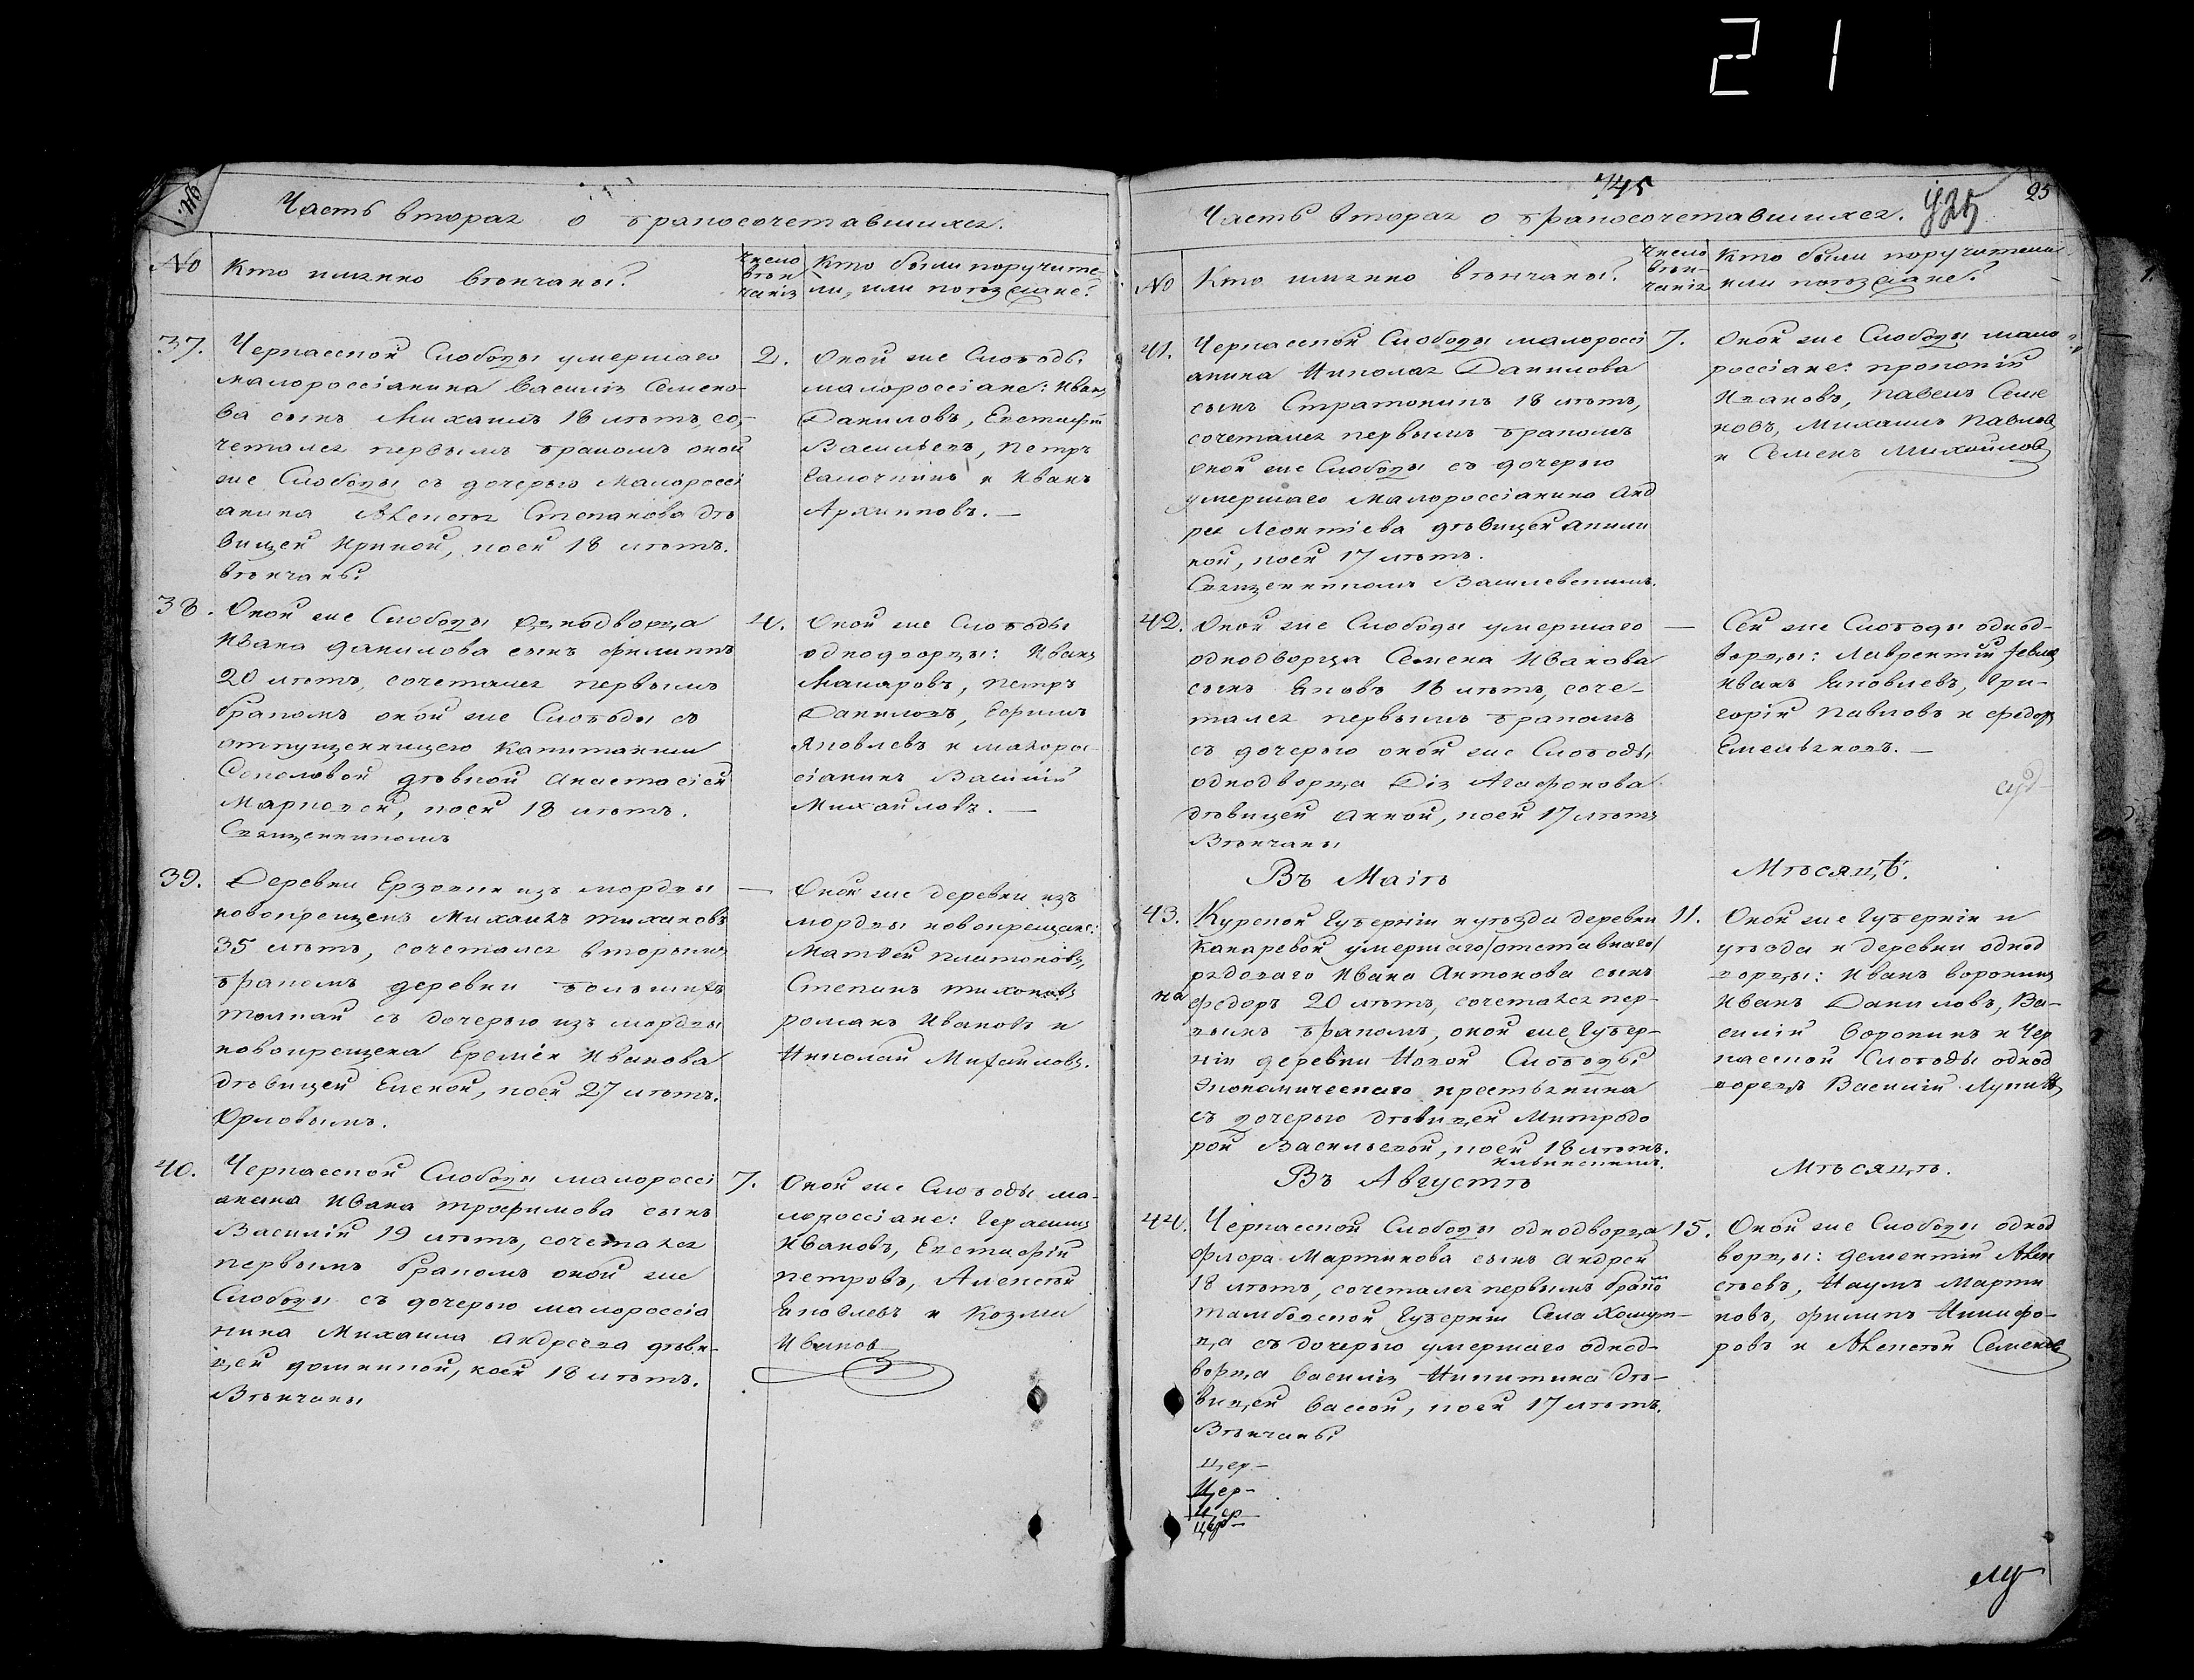 21
Часть вторая о бракосочетавшихся.
№
Кто имянно венчаны?
число
вѣн
чанія
Кто были поручите-
ли, или поѣзжане?
37.
Черкасской Слободы умершаго
малороссіянина Василія Семено-
ва сынъ Михаилъ 18 лѣтъ, со,
четался первымъ бракомъ оной
же Слободы съ дочерью Малороссі
янина Алексѣя Степанова дѣ
вицей Ириной, коей 18 лѣтъ.
вѣнчаны
2.
Оной же Слободы
малороссіяне: Иванъ
Даниловъ, Евстафій
Васильевъ, Петръ
Галочкинъ и Иванъ
Архиповъ.—
38.
Оной же Слободы однодворца
Ивана данилова сынъ филиппъ
20 лѣтъ, сочетался первымъ
бракомъ оной же Слободы съ
отпущенницею Капитанши
Соколовой дѣвкой Анастасіей
Марковой, коей 18 лѣтъ.
Священникомъ
4.
Оной же Слободы
однодворцы: Иванъ
Макаровъ, Петръ
Даниловъ, Ефимъ
Яковлевъ и малорос-
сіянинъ Василій
Михайловъ.—
39.
Деревни Ерзовки изъ мордвы
новокрещенъ Михаилъ тихоновъ
35 лѣтъ, сочетался вторымъ
бракомъ деревни большихъ
толкай съ дочерью изъ мордвы
новокрещена Еремѣя Иванова
дѣвицей Еленой, коей 27 лѣтъ.
Орловымъ.
—
Оной же деревни изъ
мордвы новокрещане:
Матвѣй платоновъ,
Степанъ тихоновъ
романъ Ивановъ и
Николай Михайловъ.
40.
Черкасской Слободы малороссі
янина Ивана трофимова сынъ
Василій 19 лѣтъ, сочетался
первымъ бракомъ оной же
Слободы съ дочерью малороссія
нина Михаила Андреева дѣви-
цей домникой, коей 18 лѣтъ.
Вѣнчаны
7.
Оной же Слободы ма-
лороссіяне: Герасимъ
Ивановъ, Евстафій
петровъ, Алексѣй
Яковлевъ и Козма
Ивановъ
745
25
Часть вторая о бракосочетавшихся.
№
Кто имянно вѣнчаны?
число
вѣн-
чанія
Кто были поручители
или поѣзжане?
41.
Черкасской Слободы малороссі
янина Николая Данилова
сынъ Стратоникъ 18 лѣтъ,
сочетался первымъ бракомъ
оной же Слободы съ дочерью
умершаго малороссіянина Анд
рея Леонтіева дѣвицей Акили
ной, коей 17 лѣтъ.
Священникомъ Василевскимъ.
7.
Оной же Слободы мало
россіяне: прокопій
Ивановъ, Павелъ Семе
новъ, Михаилъ Павловъ
и Семенъ Михайловъ
42.
Оной же Слободы умершаго
однодворца Семена Иванова
сынъ Яковъ 18 лѣтъ, соче-
тался первымъ бракомъ
съ дочерью оной же Слободы
однодворца Агафонова
дѣвицей Анной, коей 17 лѣтъ
Вѣнчаны
—
Сей же Слободы однод-
ворцы: Лаврентій
Иванъ Яковлевъ, Гри-
горій Павловъ и федоръ
Емельяновъ.—
Въ Маіѣ
Мѣсяцѣ.
43.
Курской Губерніи и уѣзда деревни
Канаревой умершаго/отставнаго/
рядоваго Ивана Антонова сынъ
федоръ 20 лѣтъ, сочетался пер-
вымъ бракомъ, оной же Губер-
ніи деревни Новой Слободы
Экономическаго крестьянина
съ дочерью дѣвицей Митродо
рой Васильевой, коей 18 лѣтъ.
11.
Оной же Губерніи и
уѣзда и деревни однод
ворцы: Иванъ воронинъ
Иванъ Даниловъ, Ва-
силій Воронинъ и Чер
касской Слободы однод
ворецъ Василій
Въ Августѣ
Мѣсяцѣ.
44.
Черкасской Слободы однодворца
Флора Мартинова сынъ Андрей
18 лѣтъ, сочетался первымъ бракомъ
тамбовской Губерніи Села
съ дочерью умершаго однод-
ворца Василія Никитина дѣ-
вицей Вассой, коей 17 лѣтъ.
Вѣнчаны
15.
Оной же Слободы однод
ворцы: дементій Алек
сѣевъ, Наумъ Марти
новъ, филипъ Никифо-
ровъ и Алексѣй Семеновъ
цер—
Цер—
Цер
цер—